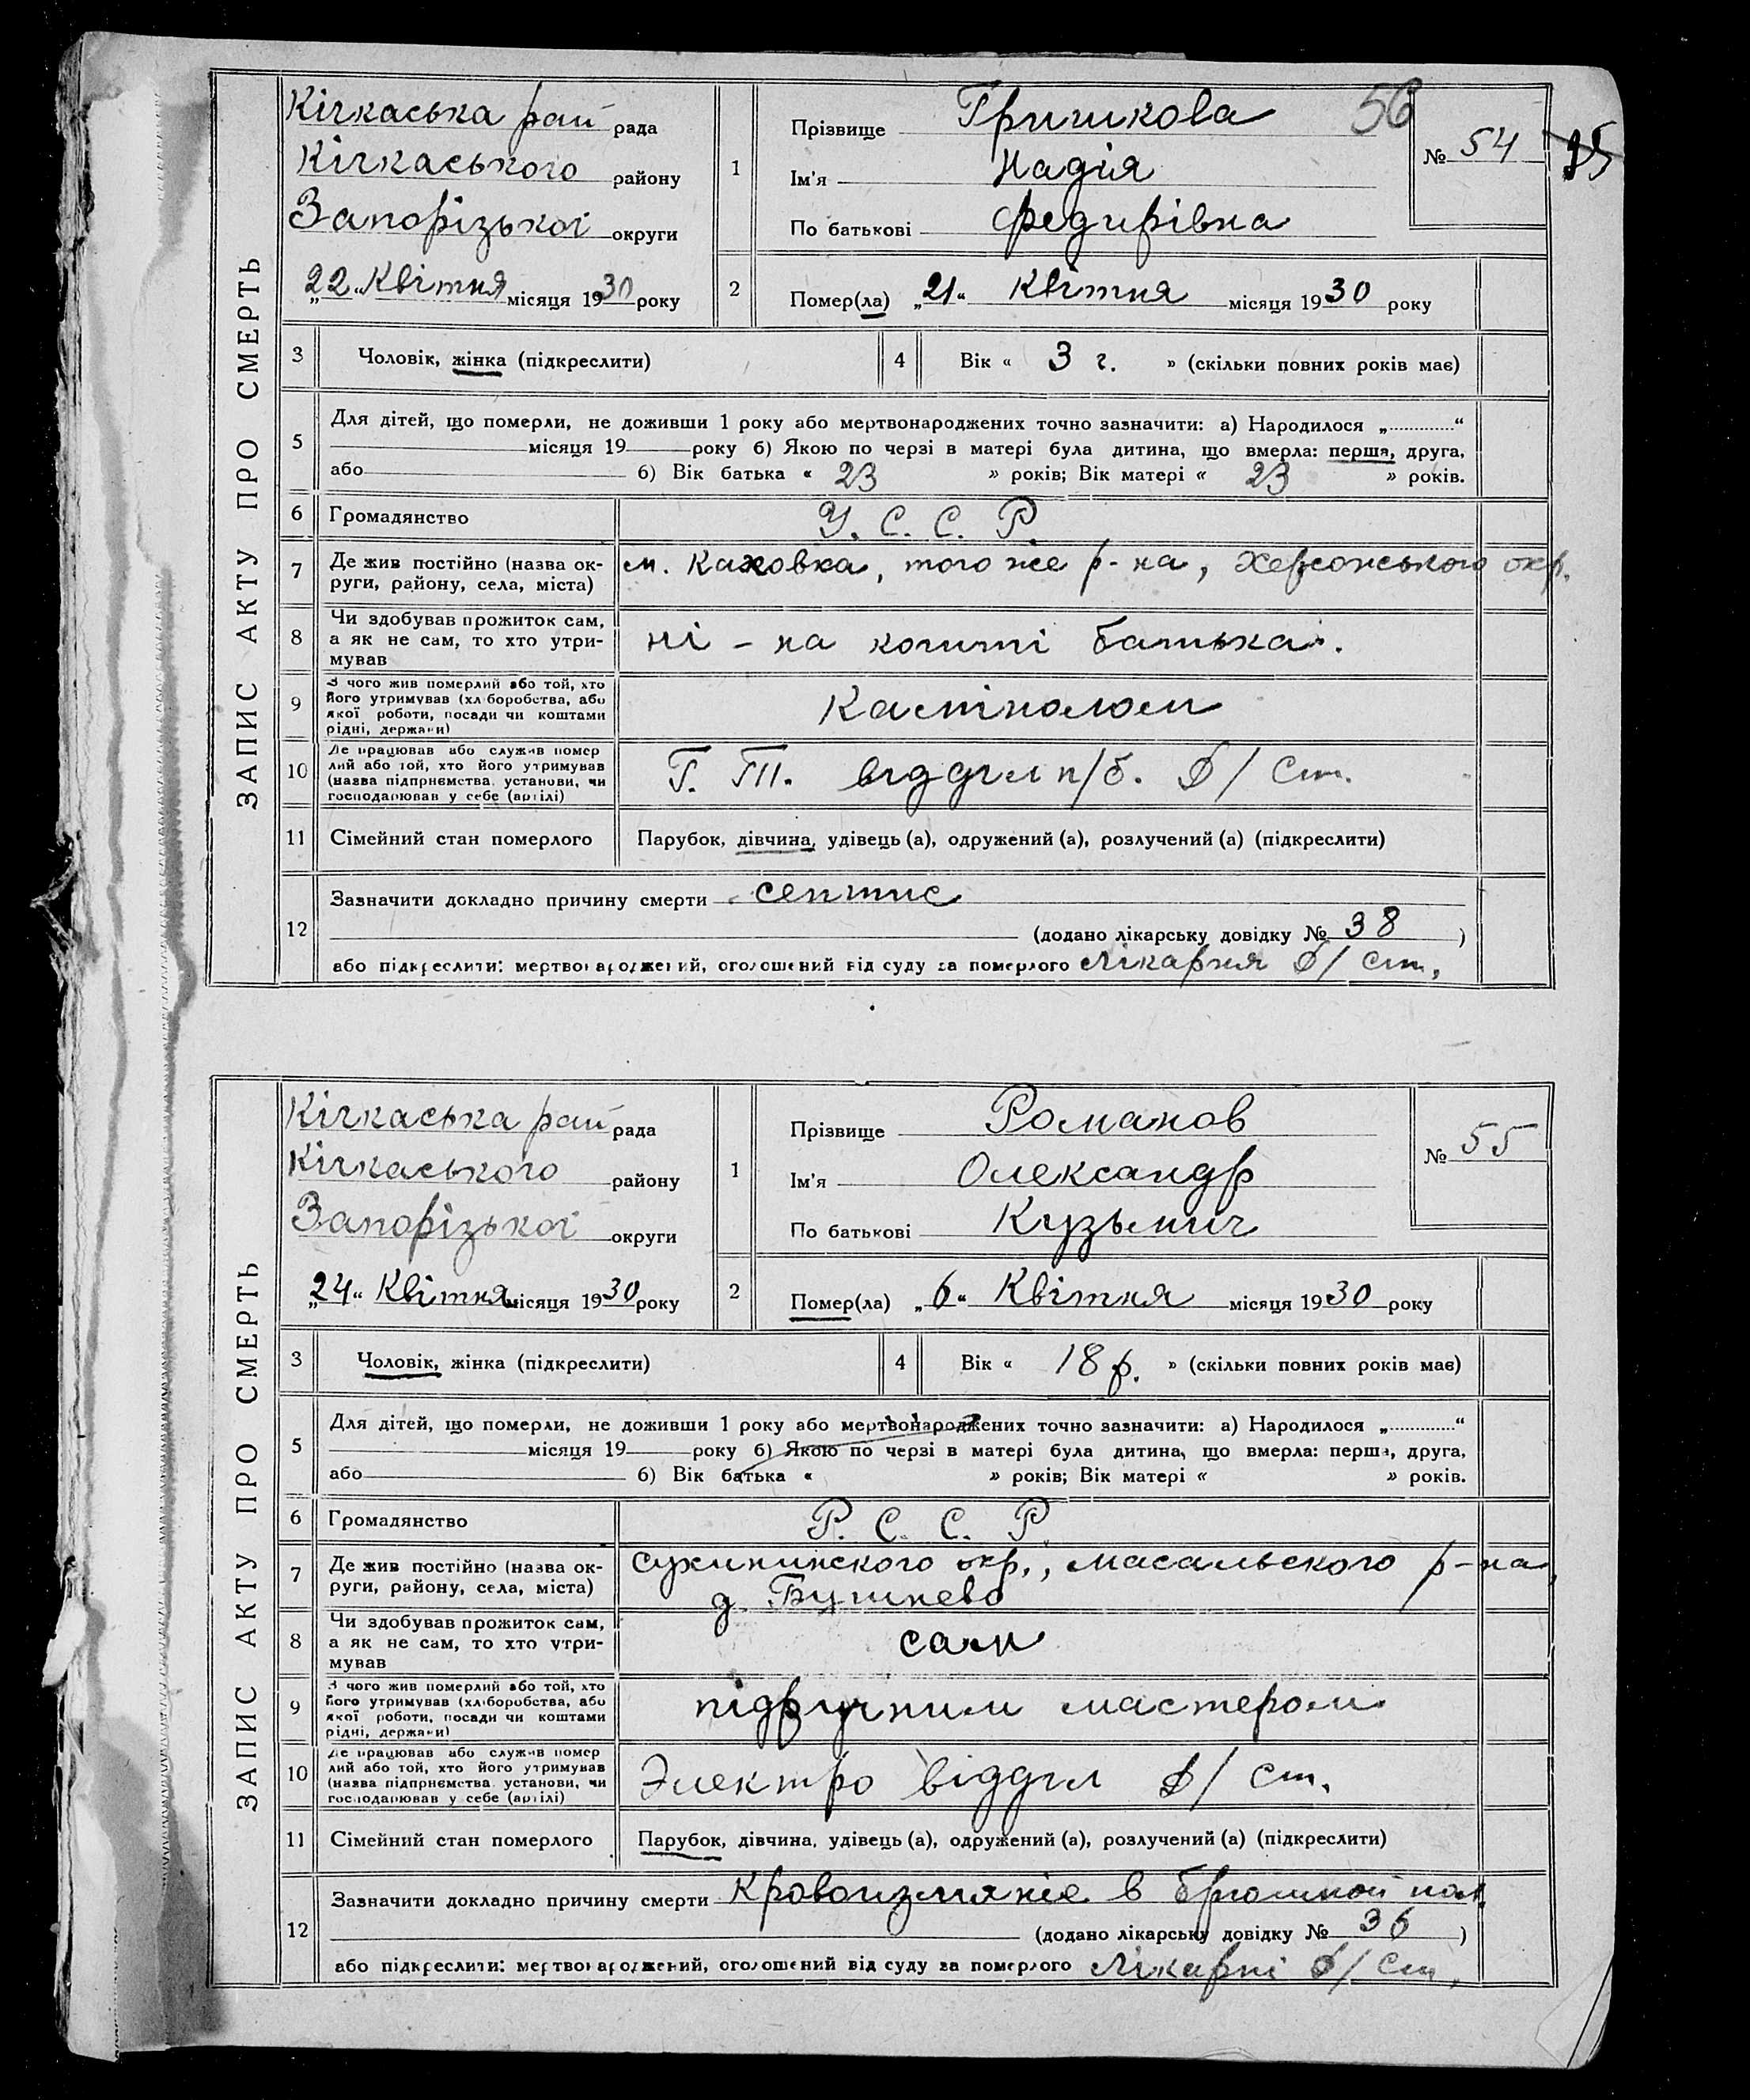 56
ЗАПИС АКТУ ПРО СМЕРТЬ
Кічкаська рай рада
Кічкаського району
Запорізької округи
„22“ Квітня місяця 1930 року
1
Прізвище Гришкова
Ім'я Надія
По батькові Федирівна
№ 54
2
Помер(ла) „21“ Квітня місяця 1930 року
3 Чоловік, жінка (підкреслити)
4 Вік « 3 г. » (скільки повних років має)
5 Для дітей, що померли, не доживши 1 року або мертвонароджених точно зазначити: а) Народилося „............“
місяця 19 року б) Якою по черзі в матері була дитина, що вмерла: перша, друга,
або б) Вік батька « 23 » років; Вік матері « 23 » років.
6 Громадянство У. С. С. Р.
7 Де жив постійно (назва ок-
руги, району, села, міста)
м. Каховка, того же р-на, Херсонського окр.
8 Чи здобував прожиток сам,
а як не сам, то хто утри-
мував
ні - на кошті батька.
9 З чого жив померлий або той, хто
його утримував (хліборобства, або
якої роботи, посади чи коштами
рідні, держави)
10 Де працював або служив помер
лий або той, хто його утримував
(назва підприємства установи, чи
господарював у себе (артілі)
Г. Ш. відділ п/б. Д/Ст.
11 Сімейний стан померлого Парубок, дівчина, удівець (а), одружений (а), розлучений (а) (підкреслити)
12 Зазначити докладно причину смерти септис
(додано лікарську довідку № 38 )
або підкреслити: мертвонароджений, оголошений від суду за померлого Лікарня Д/Ст.
ЗАПИС АКТУ ПРО СМЕРТЬ
Кічкаська рай рада
Кічкаського району
Запорізької округи
„24“ Квітня місяця 1930 року
1
Прізвище Романов
Ім'я Олександр
По батькові Кузьмич
№ 55
2
Помер(ла) „6“ Квітня місяця 1930 року
3 Чоловік, жінка (підкреслити)
4 Вік « 18 р. » (скільки повних років має)
5 Для дітей, що померли, не доживши 1 року або мертвонароджених точно зазначити: а) Народилося „............“
місяця 19 року б) Якою по черзі в матері була дитина, що вмерла: перша, друга,
або б) Вік батька « » років; Вік матері « » років.
6 Громадянство Р. С. С. Р.
7 Де жив постійно (назва ок-
руги, району, села, міста)
Сухининского окр., Масальского р-на,
д. Бушнево
8 Чи здобував прожиток сам,
а як не сам, то хто утри-
мував
сам
9 З чого жив померлий або той, хто
його утримував (хліборобства, або
якої роботи, посади чи коштами
рідні, держави)
підручним мастером
10 Де працював або служив помер
лий або той, хто його утримував
(назва підприємства установи, чи
господарював у себе (артілі)
Электро відділ Д/Ст.
11 Сімейний стан померлого Парубок, дівчина, удівець (а), одружений (а), розлучений (а) (підкреслити)
12 Зазначити докладно причину смерти Кровоизлияніе в брюшной пол.
(додано лікарську довідку № 36 )
або підкреслити: мертвонароджений, оголошений від суду за померлого Лікарні Д/Ст.